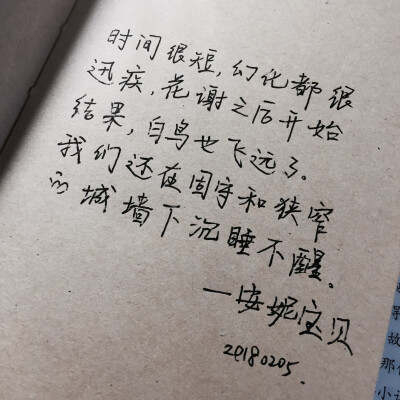 时间很短，幻化都很
迅疾，花谢之后开始
结果，白鸟也飞远了。
我们还在固守和狭窄
的城墙下沉睡不醒。
—安妮宝贝
20180205.
故
那
小